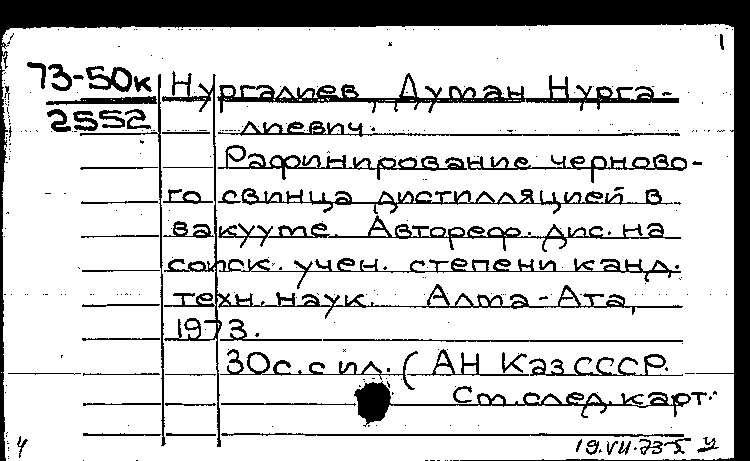 1
73-50к Нургалиев, Думан Нурга-
2552 лиевич.
Рафинирование черново-
го свинца дистилляцией в
вакууме. Автореф. дис. на
соиск. учен. степени канд.
техн. наук. Алма-Ата,
1973.
30с. с ил. (АН КазСССР.
См. след. карт.
19.VII.73